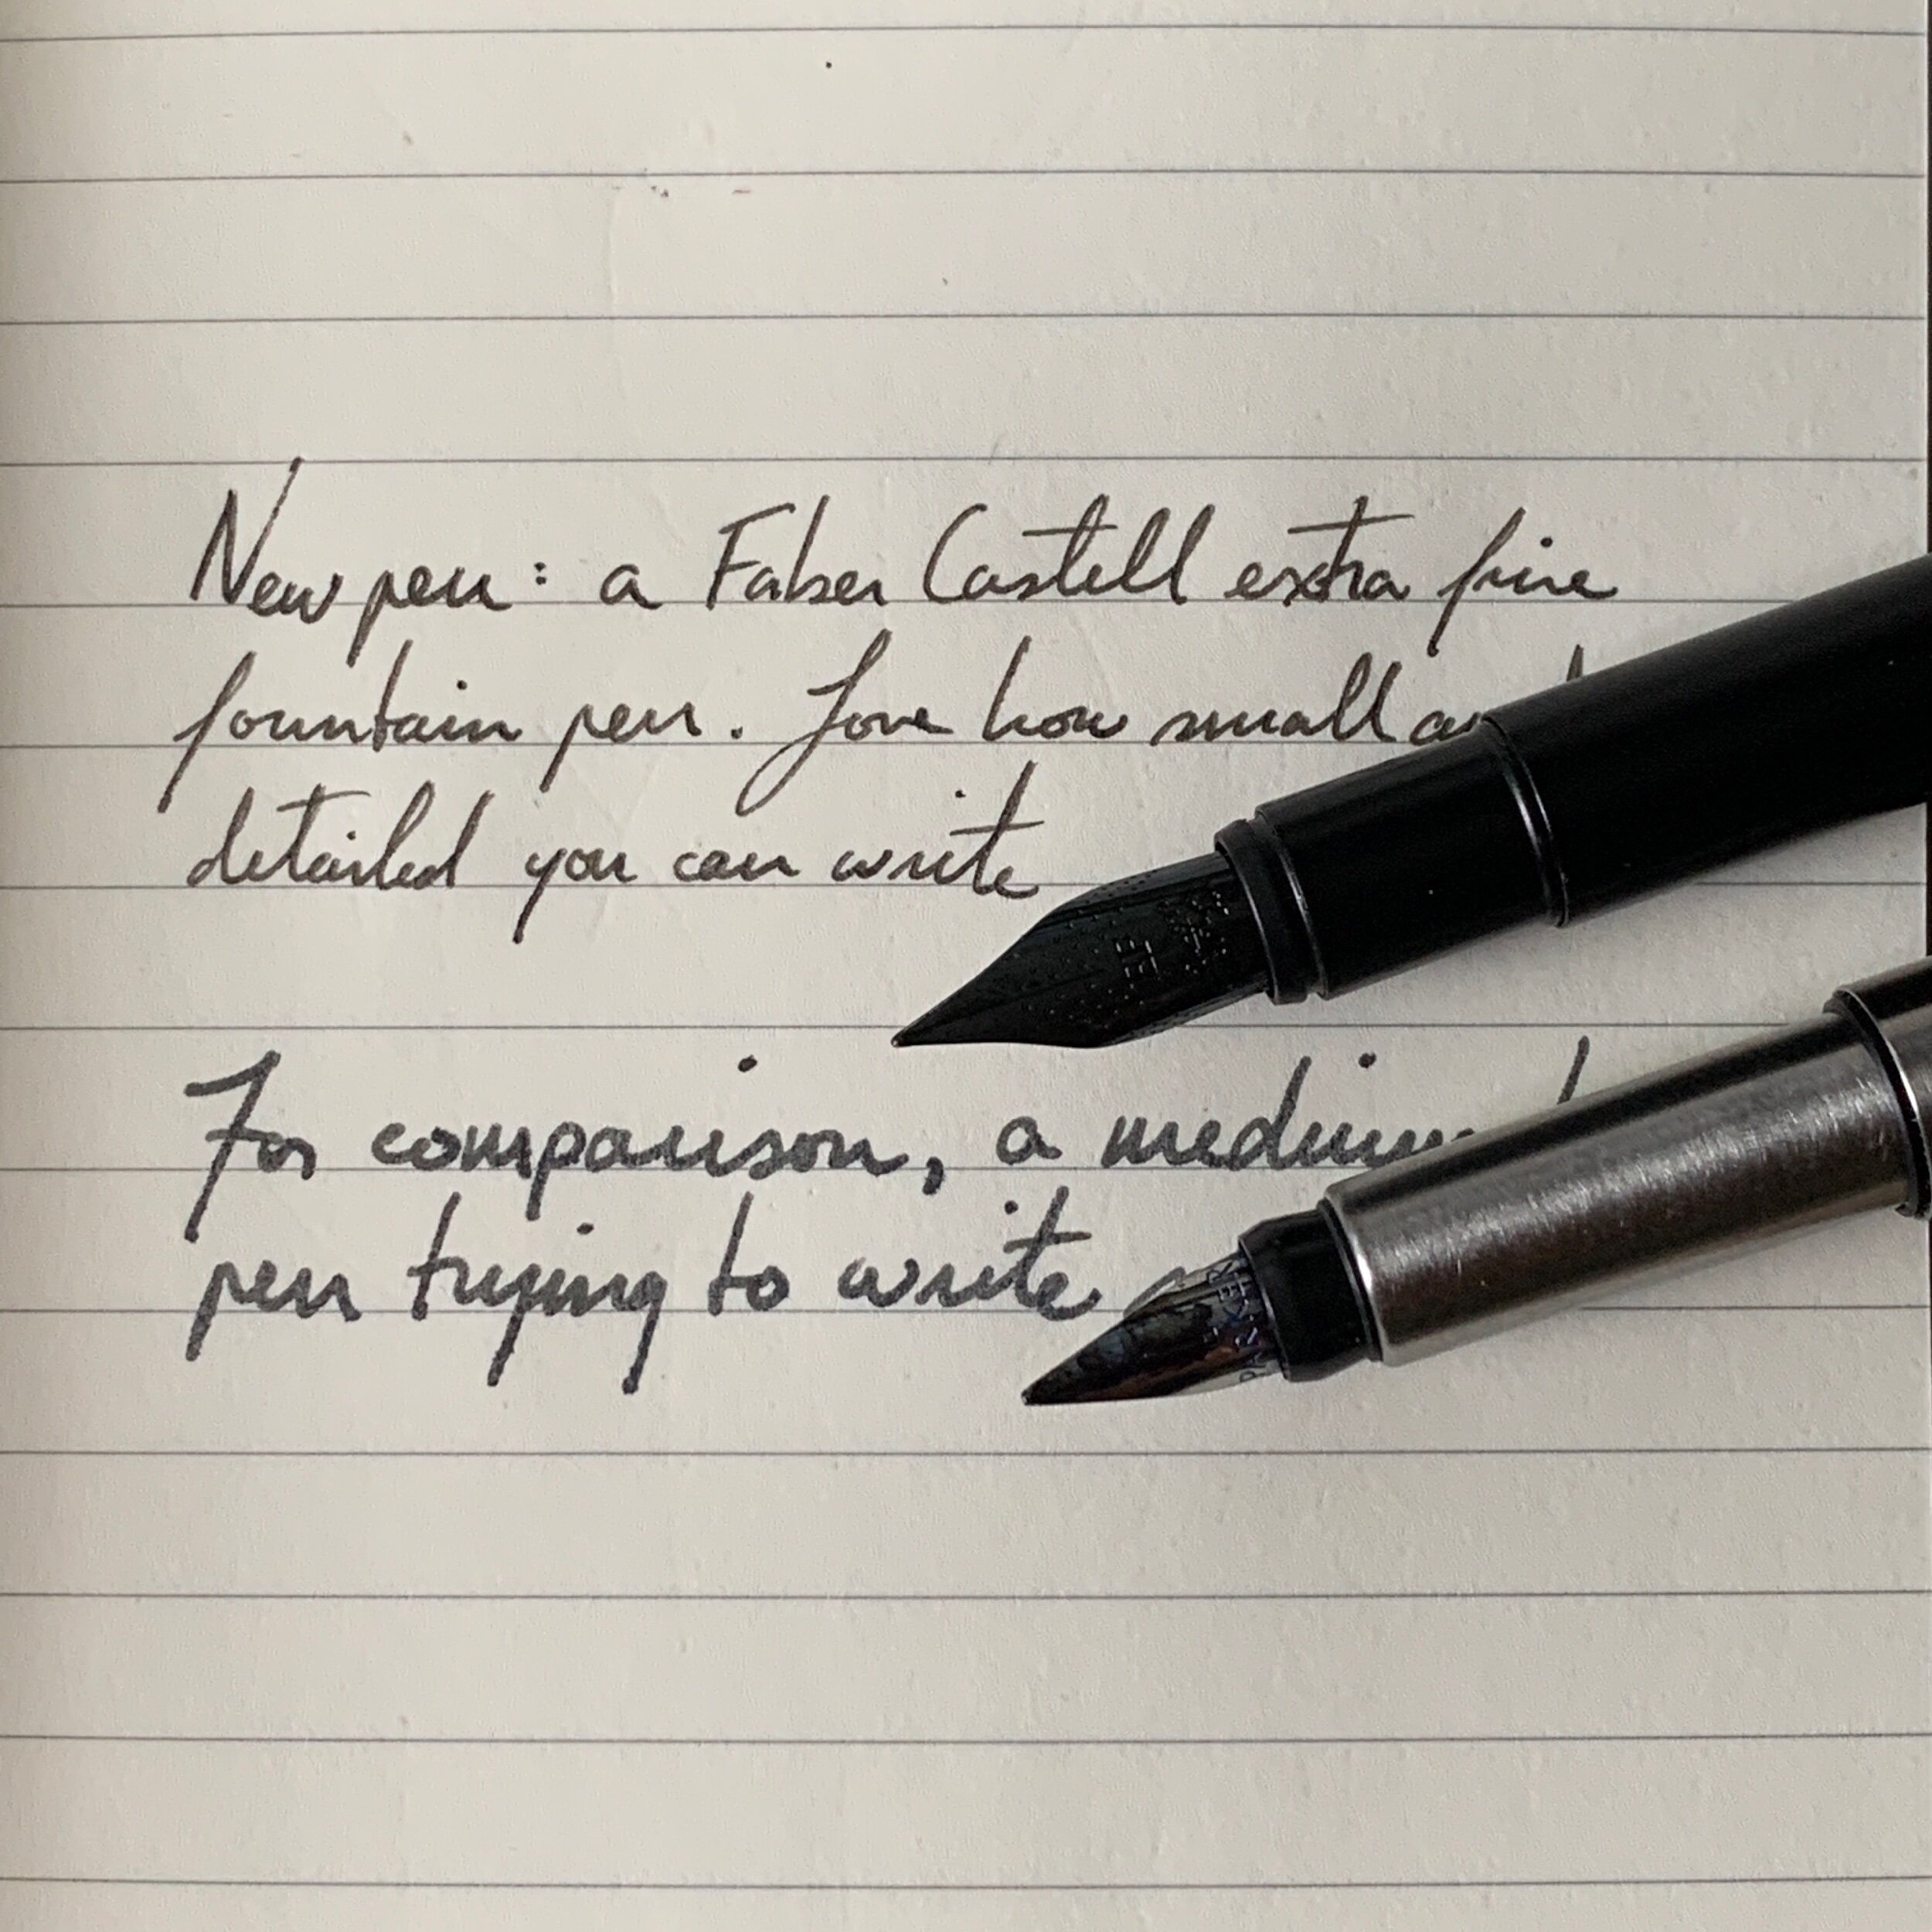 New pen: a Faber Castell extra fine
fountain pen. Love how small
detailed you can write
For comparison, a medium
pen trying to write
EF
PARKER